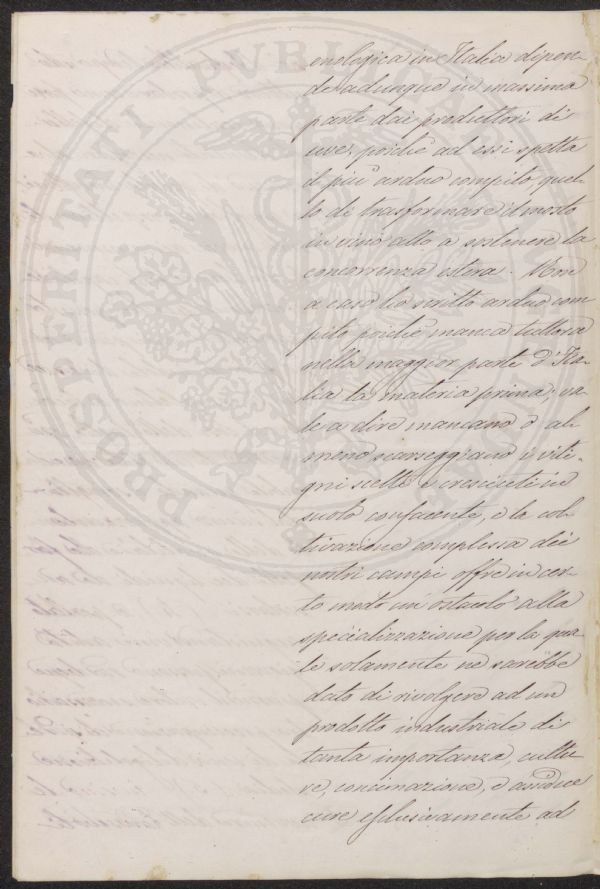 enologica in Italia dipen-
de adunque in massima
parte dai produttori di
uve, poichè ad essi spetta
il piu' arduo compito, quel-
lo di trasformare il mosto
in vino atto a sostenere la
concorrenza estera. Non
a caso ho scritto arduo com
pito poichè manca tuttora
nella maggior parte d'Ita-
lia la materia prima; va-
le a dire mancano o al-
meno scarseggiano i viti-
gni scelti e cresciuti in
suolo confacente, e la col-
tivazione complessa dei
nostri campi offre in cer-
to modo un ostacolo alla
specializzazione per la qua-
le solamente ne sarebbe
dato di rivolgere ad un
prodotto industriale di
tanta importanza, cultu-
re, concimazione, e assidue
cure esclusivamente ad
PROSPERITATI PVBLICAE